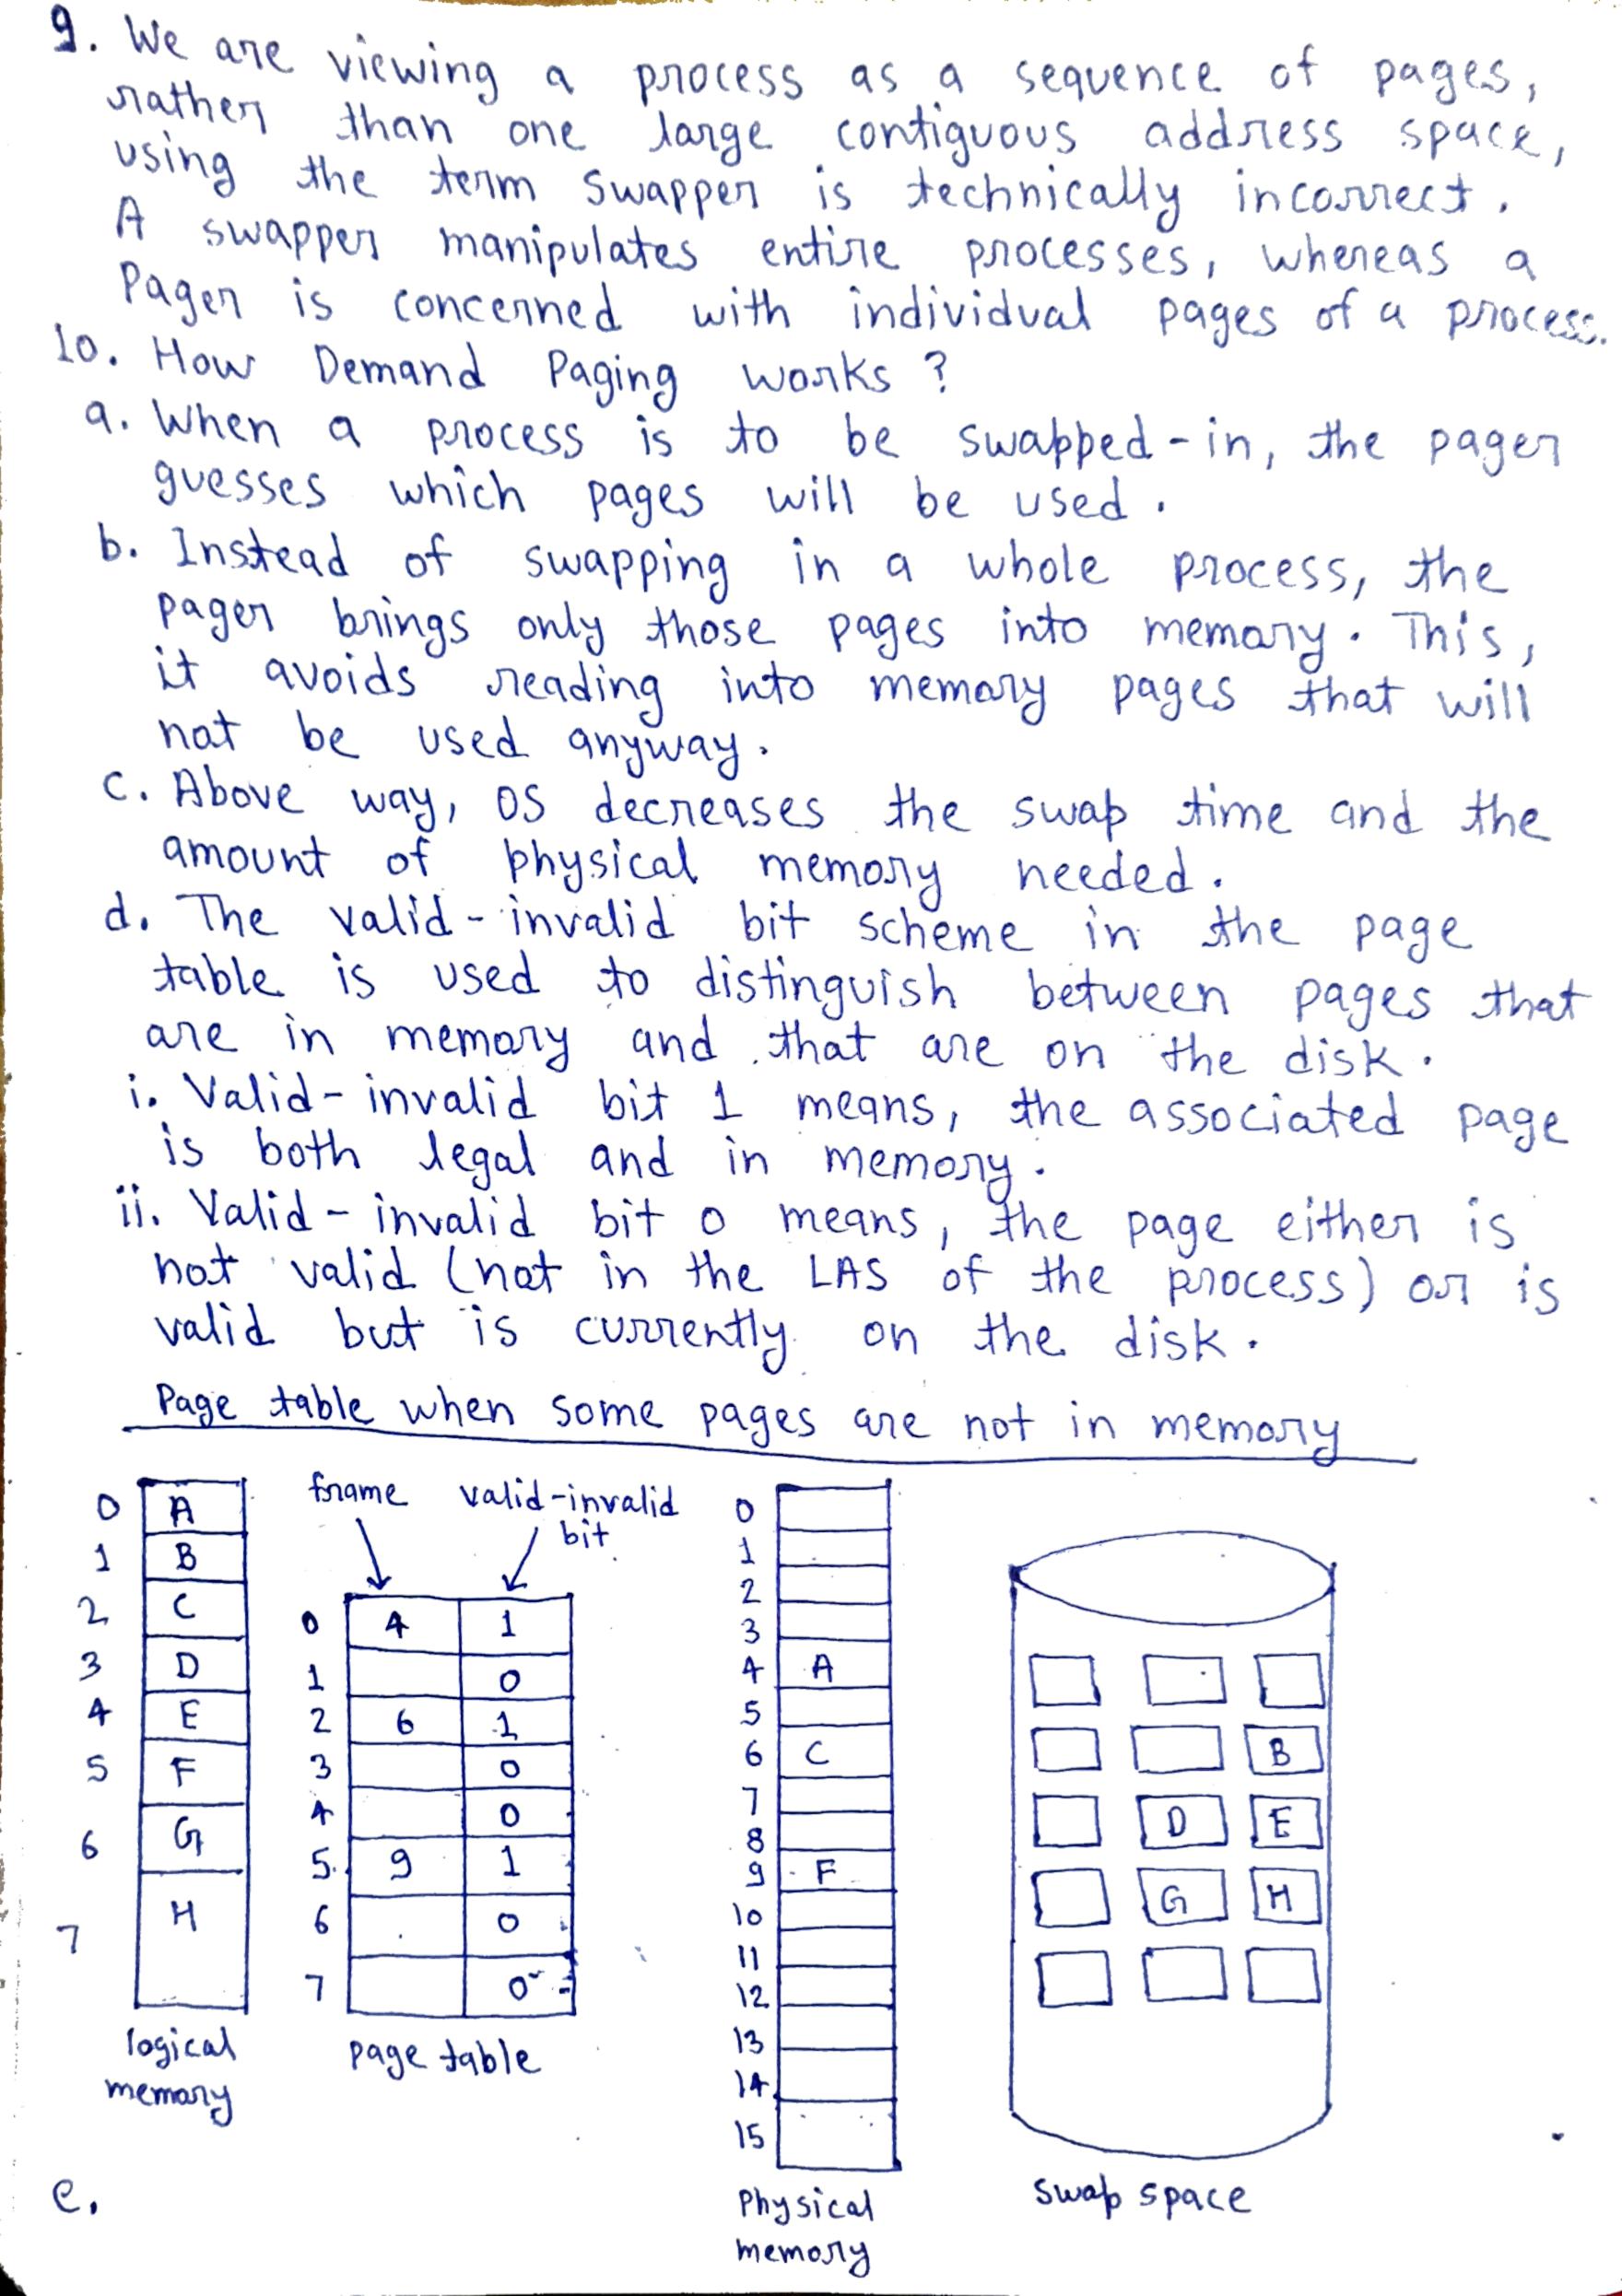 9. We are viewing a process as a sequence of pages,
rather than one large contiguous address space,
using the term swapper is technically incorrect.
A swapper manipulates entire processes, whereas a
Pager is concerned with individual pages of a process.
10. How Demand Paging works?
a. When a process is to be swapped-in, the pager
guesses which pages will be used.
b. Instead of swapping in a whole process, the
pager brings only those pages into memory. This,
it avoids reading into memory pages that will
not be used anyway.
c. Above way, OS decreases the swap time and the
amount of physical memory needed.
d. The valid-invalid bit scheme in the page
table is used to distinguish between pages that
are in memory and that are on the disk.
i. Valid-invalid bit 1 means, the associated page
is both legal and in memory.
ii. Valid-invalid bit 0 means, the page either is
not valid (not in the LAS of the process) or is
valid but is currently on the disk.
Page table when some pages are not in memory
0 A
1 B
2 C
3 D
4 E
5 F
6 G
7 H
logical
memory
frame valid-invalid
bit
0 4 1
1 0
2 6 1
3 0
4 0
5. 9 1
6 0
7 0
page table
0
1
2
3
4 A
5
6 C
7
8
9 F
10
11
12
13
14
15
Physical
memory
B
D E
G H
swap space
e.